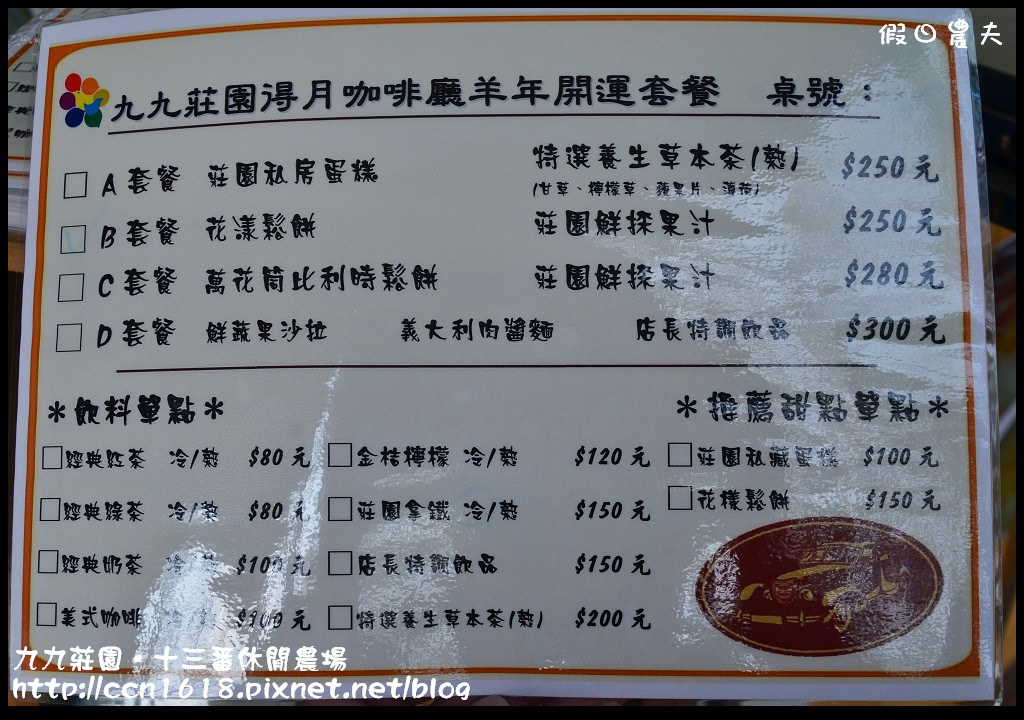 假日農夫
九九莊園得月咖啡廳羊年開運套餐 桌號：
A 套餐 莊園私房蛋糕 特選養生草本茶(熱) $250 元
(甘草、檸檬草、蘋果片、薄荷)
B 套餐 花漾鬆餅 莊園鮮採果汁 $250 元
C 套餐 萬花筒比利時鬆餅 莊園鮮採果汁 $280 元
D 套餐 鮮蔬果沙拉 義大利肉醬麵 店長特調飲品 $300 元
＊飲料單點＊ ＊推薦甜點單點＊
經典紅茶 冷/熱 $80 元 金桔檸檬 冷/熱 $120 元 莊園私藏蛋糕 $100 元
經典綠茶 冷/熱 $80 元 莊園拿鐵 冷/熱 $150 元 花樣鬆餅 $150 元
經典奶茶 冷/熱 $100 元 店長特調飲品 $150 元
美式咖啡 冷/熱 $100 元 特選養生草本茶(熱) $200 元
九九莊園．十三番休閒農場
http://ccn1618.pixnet.net/blog